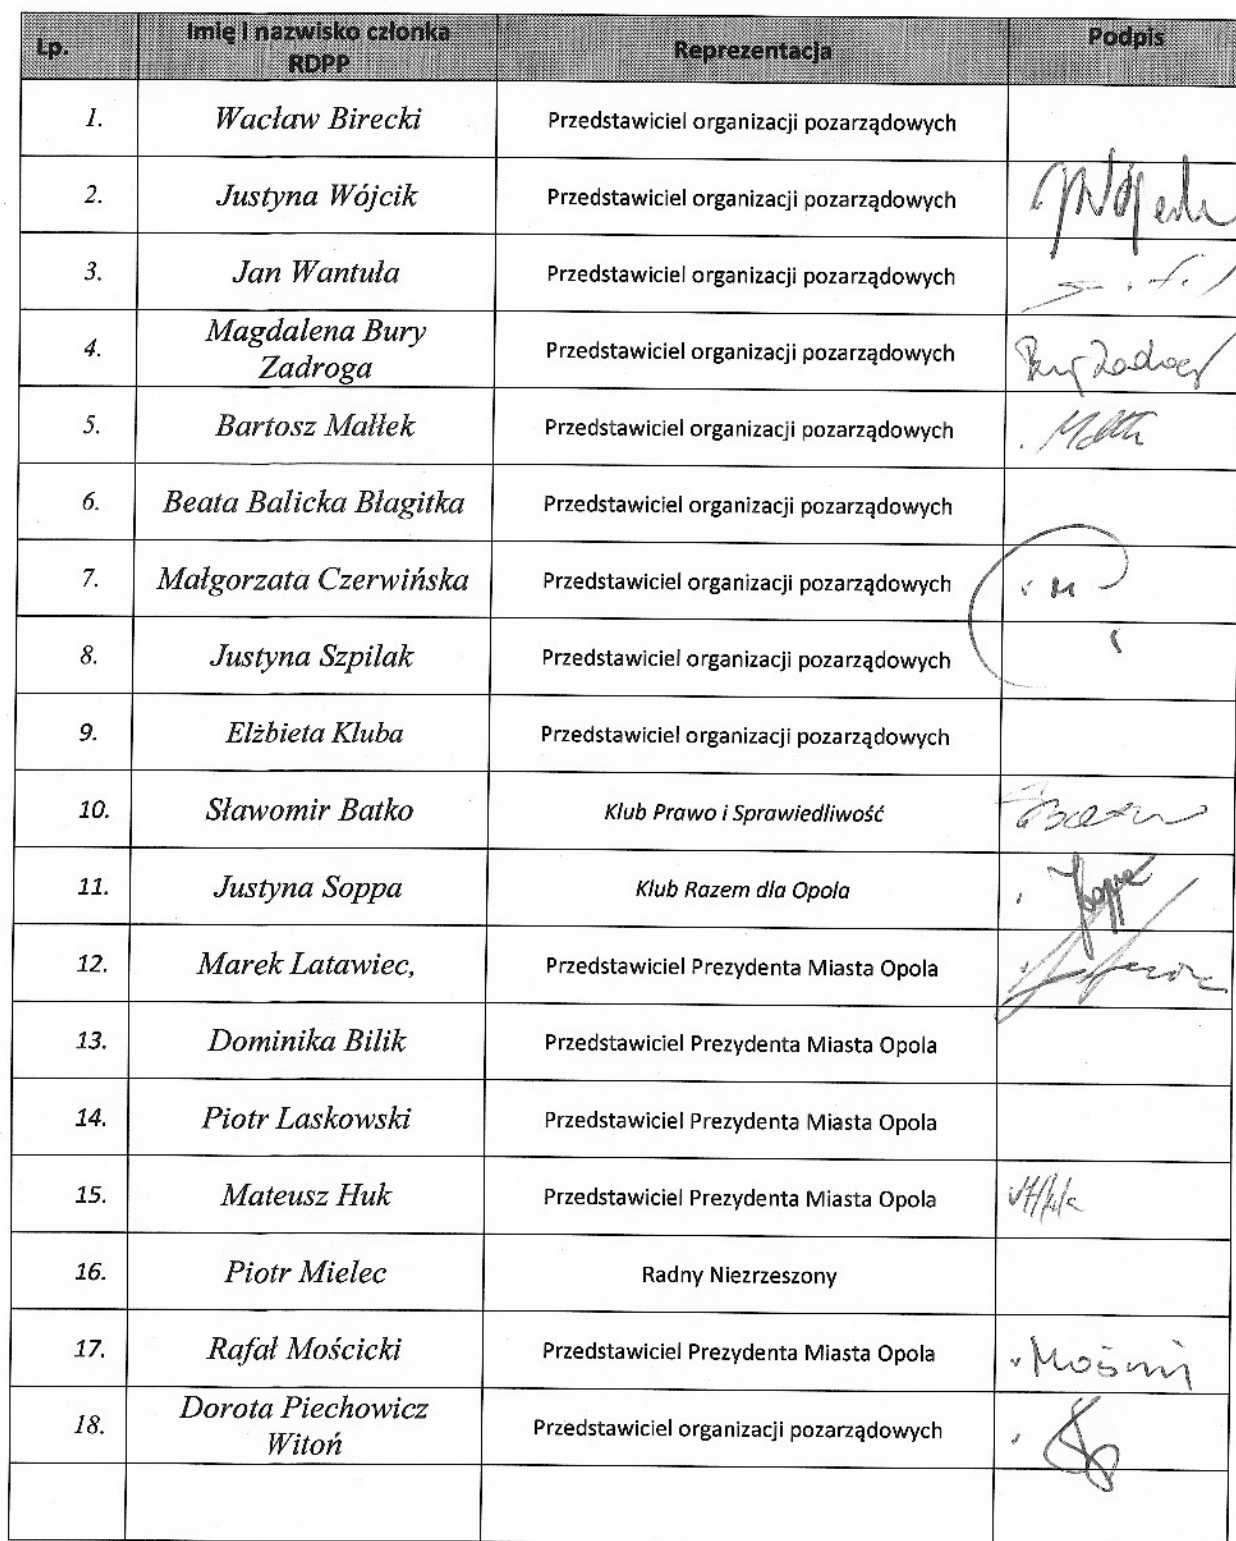 Lp. Imię i nazwisko członka RDPP Reprezentacja Podpis
1. Wacław Birecki Przedstawiciel organizacji pozarządowych
2. Justyna Wójcik Przedstawiciel organizacji pozarządowych
3. Jan Wantuła Przedstawiciel organizacji pozarządowych
4. Magdalena Bury Zadroga Przedstawiciel organizacji pozarządowych
5. Bartosz Małłek Przedstawiciel organizacji pozarządowych
6. Beata Balicka Błagitka Przedstawiciel organizacji pozarządowych
7. Małgorzata Czerwińska Przedstawiciel organizacji pozarządowych
8. Justyna Szpilak Przedstawiciel organizacji pozarządowych
9. Elżbieta Kluba Przedstawiciel organizacji pozarządowych
10. Sławomir Batko Klub Prawo i Sprawiedliwość
11. Justyna Soppa Klub Razem dla Opola
12. Marek Latawiec, Przedstawiciel Prezydenta Miasta Opola
13. Dominika Bilik Przedstawiciel Prezydenta Miasta Opola
14. Piotr Laskowski Przedstawiciel Prezydenta Miasta Opola
15. Mateusz Huk Przedstawiciel Prezydenta Miasta Opola
16. Piotr Mielec Radny Niezrzeszony
17. Rafał Mościcki Przedstawiciel Prezydenta Miasta Opola
18. Dorota Piechowicz Witoń Przedstawiciel organizacji pozarządowych